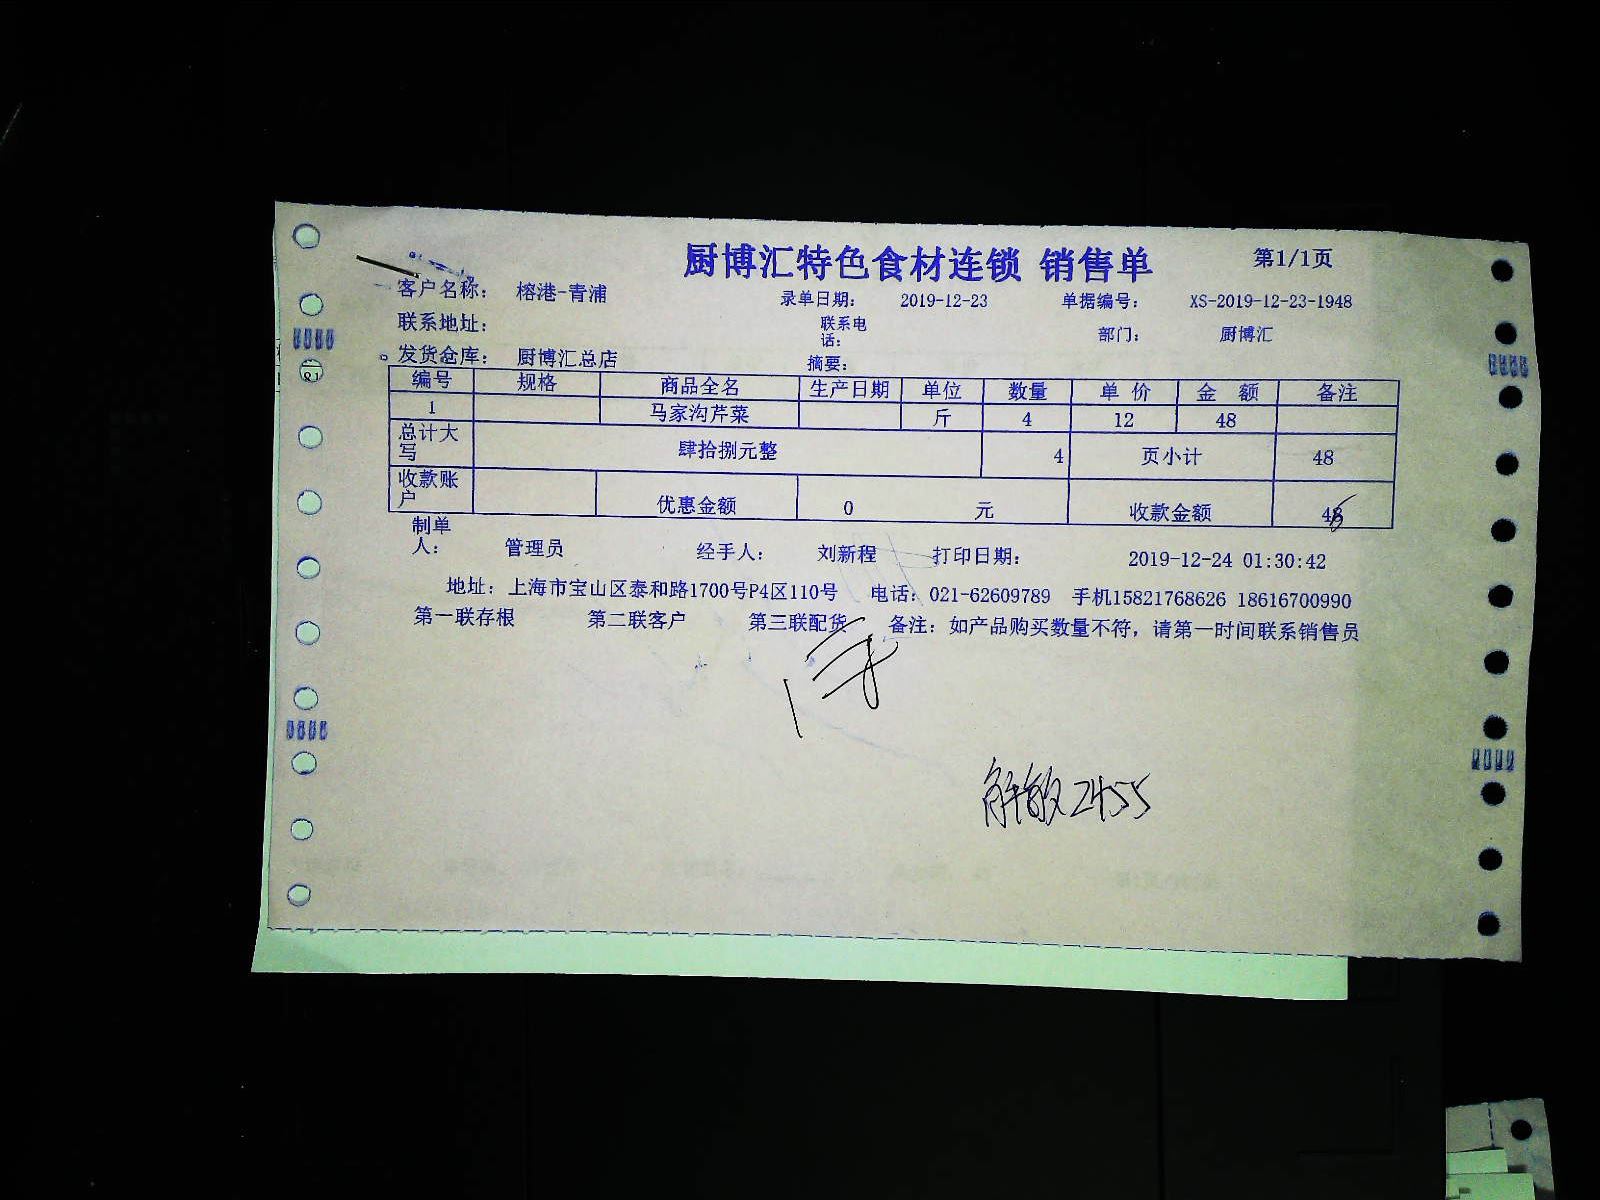 厨博汇特色食材连锁 销售单 第1/1页
客户名称： 榕港-青浦 录单日期： 2019-12-23 单据编号： XS-2019-12-23-1948
联系地址： 联系电话： 部门： 厨博汇
发货仓库： 厨博汇总店 摘要：
编号 规格 商品全名 生产日期 单位 数量 单 价 金 额 备注
1 马家沟芹菜 斤 4 12 48
总计大写 肆拾捌元整 4 页小计 48
收款账户 优惠金额 0 元 收款金额 48
制单人： 管理员 经手人： 刘新程 打印日期： 2019-12-24 01:30:42
地址：上海市宝山区泰和路1700号P4区110号 电话：021-62609789 手机15821768626 18616700990
第一联存根 第二联客户 第三联配货 备注：如产品购买数量不符，请第一时间联系销售员
2455